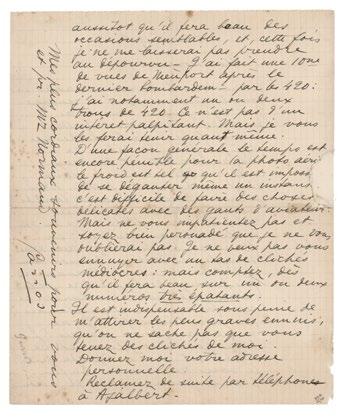 aussitot qu'il fera beau des
occasions semblables et, cette fois
je ne me laisserai pas prendre
au dépourvu - J'ai fait une 10ne
de vues de Nieuport après le
dernier bombardemt par les 420:
j'ai notamment un ou deux
trous de 420. Ce n'est pas d'un
intérêt palpitant. Mais je vous
les ferai tenir quand même.
D'une façon générale le temps est
encore penible pour la photo aeri
le froid est tel qu'il est imposs
de se déganter même un instant
c'est difficile de faire des choses
délicates avec des gants d'aviateur.
Mais ne vous impatientez pas et
soyez bien persuadé que je ne vous
oublierai pas. Je ne veux pas vous
ennuyer avec un tas de clichés
médiocres: mais comptez, dès
qu'il fera beau sur un ou deux
numeros très épatants.
Il est indispensable sous peine de
m'attirer les plus graves ennuis,
qu'on ne sache pas que vous
tenez des clichés de moi.
Donnez moi votre adresse
personnelle
Reclamez de suite par téléphone
à Ajalbert.
Mes plus cordiaux souvenirs pour vous
et pr Mr Normand